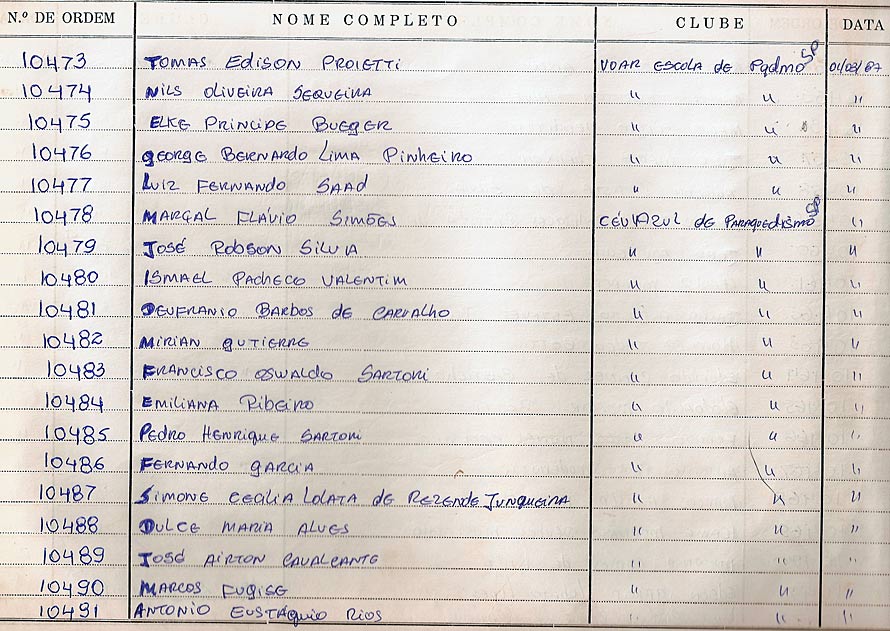 N.º DE ORDEM NOME COMPLETO CLUBE DATA
10473 TOMAS EDISON PROIETTI VOAR ESCOLA de Pqdmo SP 01/03/87
10474 NILS OLIVEIRA SEQUEIRA " " "
10475 ELKE PRINCIPE BUEGER " " "
10476 GEORGE BERNARDO LIMA PINHEIRO " " "
10477 LUIZ FERNANDO SAAD " " "
10478 MARÇAL FLÁVIO SIMÕES CÉU AZUL de PARAQUEDISMO SP "
10479 JOSÉ ROBSON SILVIA " " "
10480 ISMAEL PACHECO VALENTIM " " "
10481 DEUFRANIO BARBOS de CARVALHO " " "
10482 MIRIAN GUTIERRE " " "
10483 FRANCISCO OSWALDO SARTORI " " "
10484 EMILIANA RIBEIRO " " "
10485 PEDRO HENRIQUE SARTORI " " "
10486 FERNANDO GARCIA " " "
10487 SIMONE CECILIA LOLATA de REZENDE JUNQUEIRA " " "
10488 DULCE MARIA ALVES " " "
10489 JOSÉ AIRTON CAVALCANTE " " "
10490 MARCOS FUGISE " " "
10491 ANTONIO EUSTÁQUIO RIOS " " "